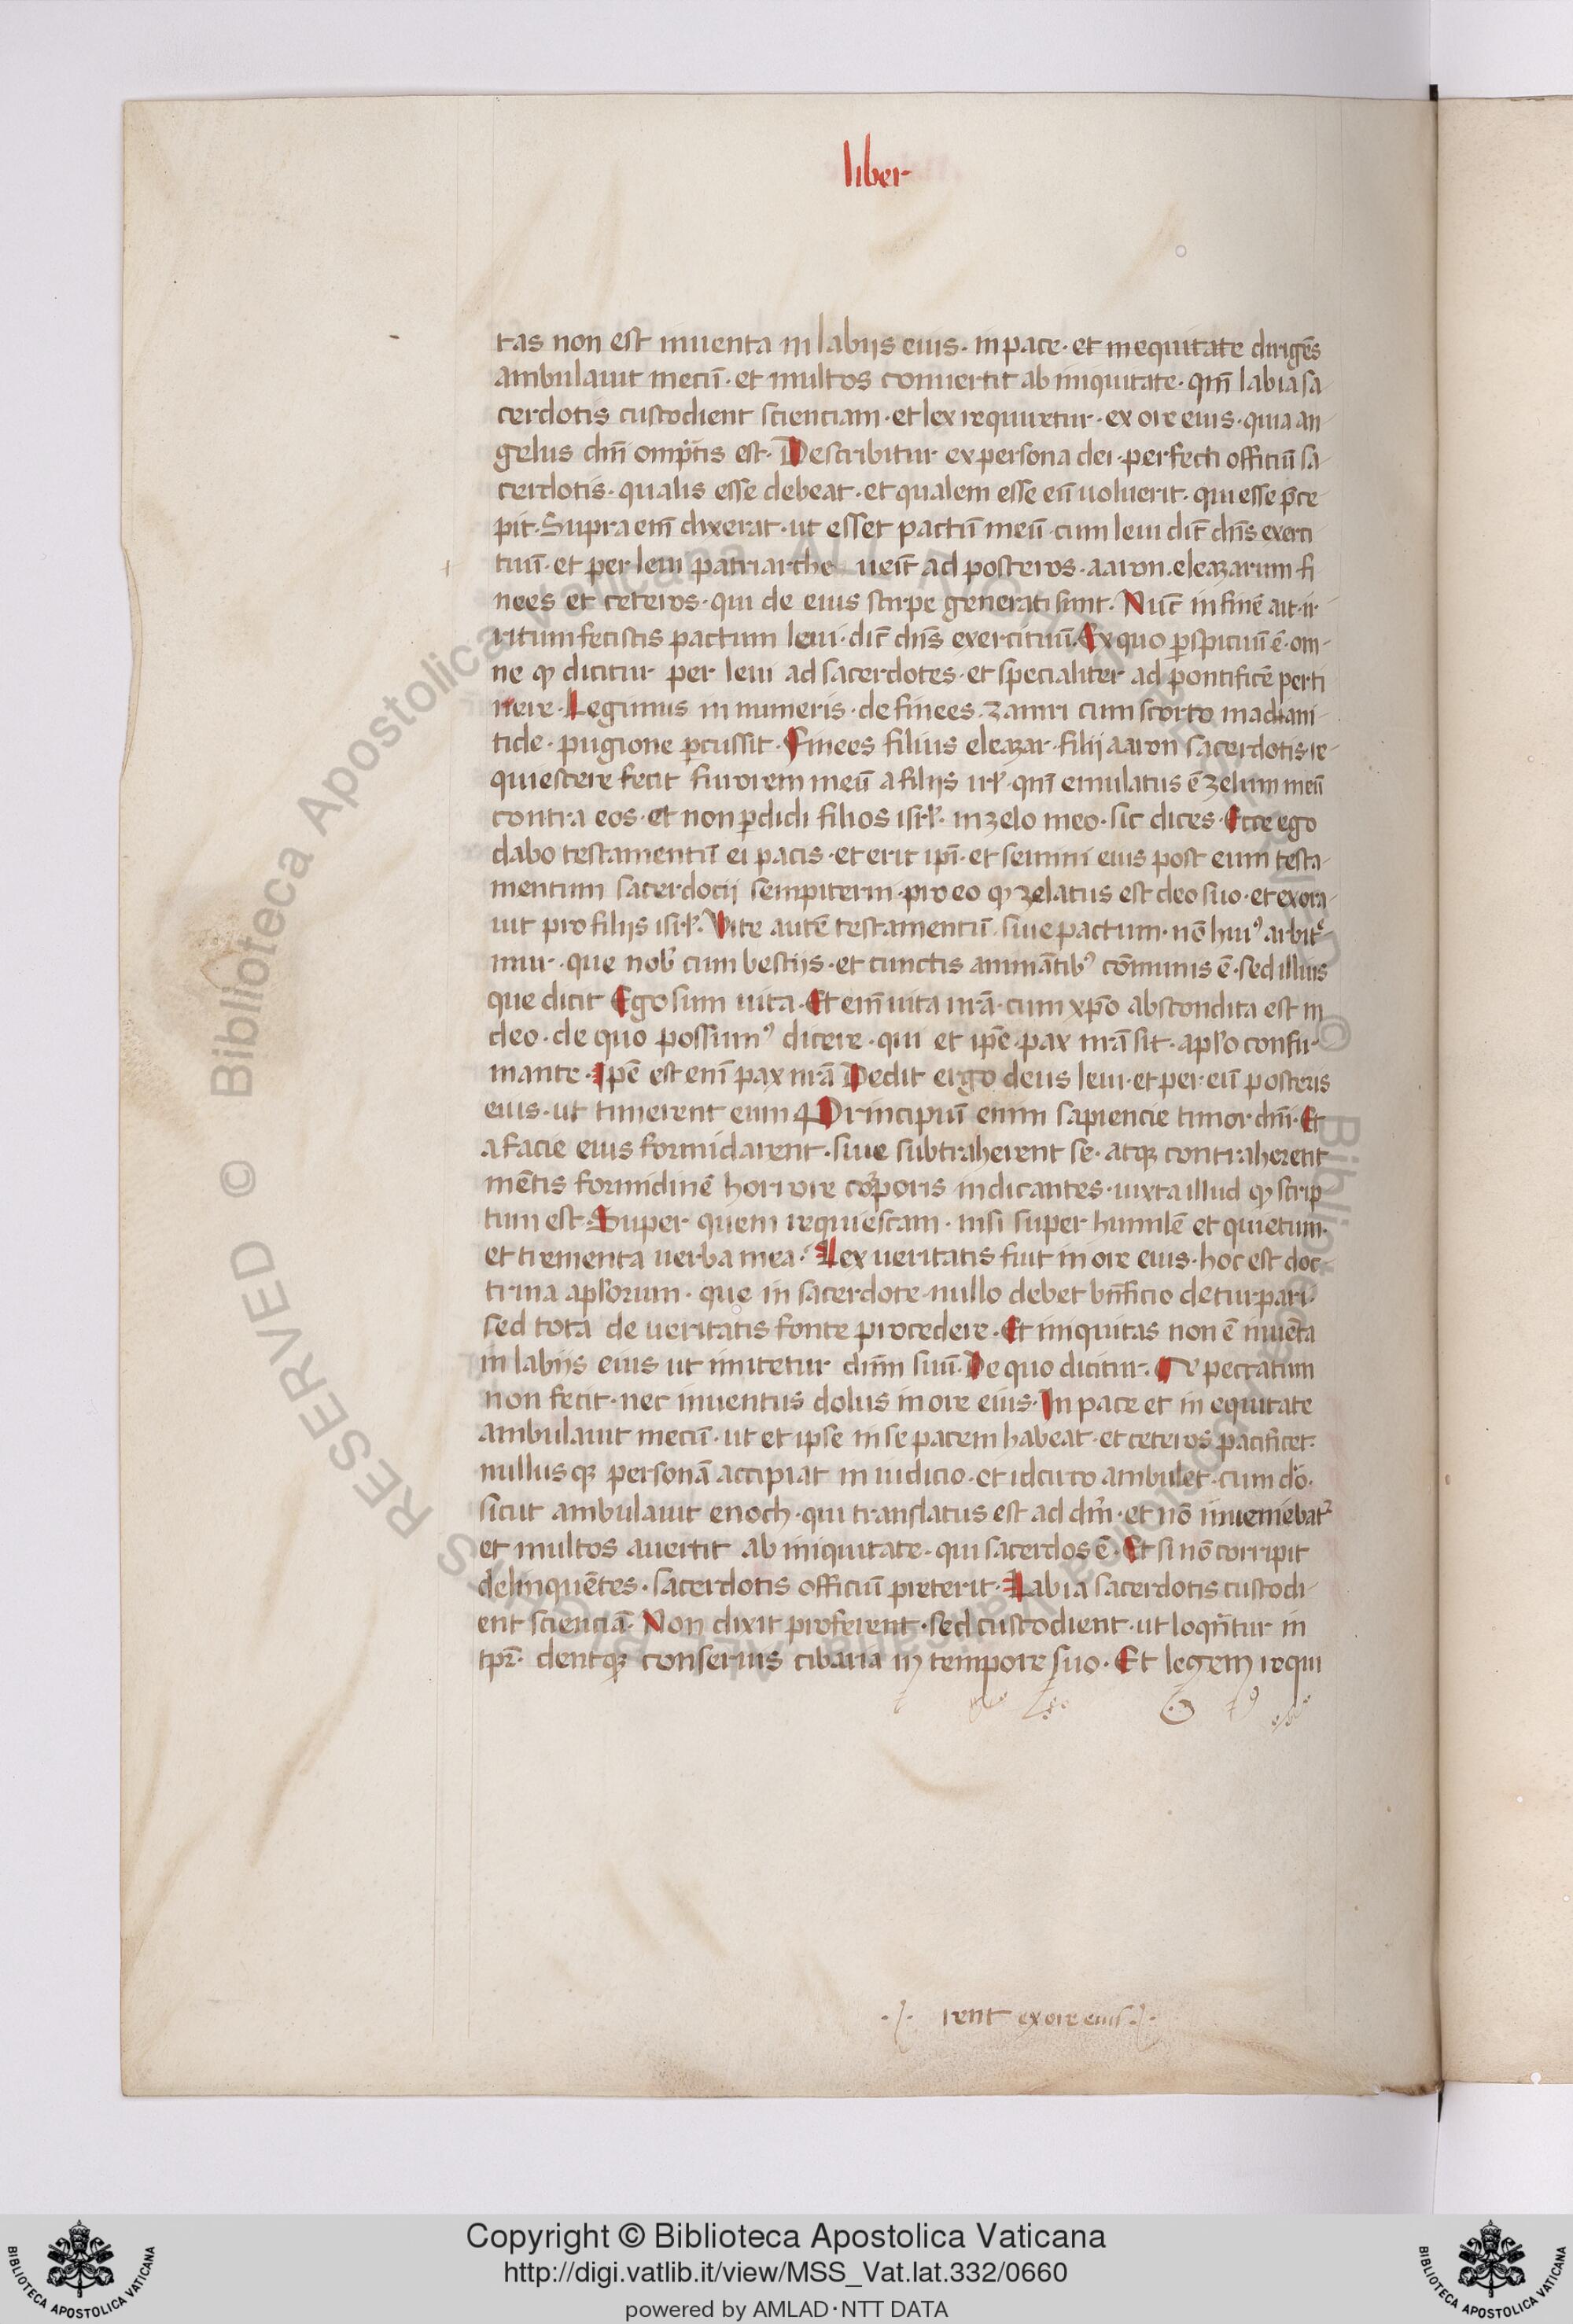 liber
tas non est inuenta in labijs eius. in pace. et in equitate dirigẽs
ambulauit mecũ. et multos conuertit ab iniquitate. qm̃ labia sa
cerdotis custodient scienciam. et lex requiretur. ex ore eius. quia an
gelus dñi omp̃tis est. Describitur ex persona dei. perfecti officiũ sa
cerdotis. qualis esse debeat. et qualem esse eũ uoluerit. qui esse p̃ce
pit. Supra em̃ dixerat. ut esset pactũ meũ cum leui dic̃ dñs exerci
tuũ. et per leui patriarche ueit̃ ad posteros. aaron. eleazarum fi
nees et ceteros. qui de eius stirpe generati sunt. Nũc in finẽ ait. ir
ritum fecistis pactum leui. dic̃ dñs exercituũ. Ex quo ꝑspicuũ ẽ. om
ne ꝙ dicitur per leui ad sacerdotes. et specialiter ad pontificẽ perti
nere. Legimus in numeris. de finees. zamri cum scorto madiani
tide. pugione ꝑcussit. Finees filius eleazar. filij aaron sacerdotis. re
quiescere fecit furorem meũ a filijs irl̃. qm̃ emulatus ẽ zelum meũ
contra eos. et non ꝑdidi filios isrl̃. in zelo meo. sic dices. Ecce ego
dabo testamentũ ei pacis. et erit ip̃i. et semini eius post eum testa
mentum sacerdocij sempiterni. pro eo ꝙ zelatus est deo suo. et exora
uit pro filijs isrl̃. Vite autẽ testamentũ siue pactum. nõ huiꝰ arbit̃
mur. que nob̃ cum bestijs. et cunctis animãtibꝰ cõmunis ẽ. sed illius
que dicit Ego sum uita. Et em̃ uita nr̃a. cum xp̃o abscondita est in
deo. de quo possumꝰ dicere. qui et ip̃e pax nr̃a sit. apl̃o confir
mante. Ip̃e est enĩ pax nr̃a Dedit ergo deus leui. et per eũ posteris
eius. ut timerent eum Principiũ enim sapiencie timor dñi. Et
a facie eius formidarent. siue subtraherent se. atqꝫ contraherent
mẽtis formidinẽ horrore corporis indicantes. iuxta illud ꝙ scrip
tum est. Super quem requiescam. nisi super humilẽ et quietum.
et trementa uerba mea. Lex ueritatis fuit in ore eius. hoc est doc
trina apl̃orum. que in sacerdote nullo debet bñficio deturpari
sed tota de ueritatis fonte procedere. Et iniquitas non ẽ inuẽta
in labijs eius ut imitetur dñm suũ. De quo dicitur. Qꝛ peccatum
non fecit. nec inuentus dolus in ore eius. In pace et in equitate
ambulauit mecũ. ut et ipse in se pacem habeat. et ceteros pacificet.
nullusqꝫ personã accipiat in iudicio. et idcirco ambulet. cum dõ.
sicut ambulauit enoch. qui translatus est ad dñ. et nõ inueniebat᷑
et multos auertit ab iniquitate. qui sacerdos ẽ. Et si nõ corripit
delinquẽtes. sacerdotis officiũ preterit. Labia sacerdotis custodi
ent scienciã. Non dixit proferent. sed custodient. ut loqñtur in
tpr̃. dentqꝫ conseruis cibaria in tempore suo. Et legem requi
rent ex ore eius
Copyright © Biblioteca Apostolica Vaticana
http://digi.vatlib.it/view/MSS_Vat.lat.332/0660
powered by AMLAD·NTT DATA